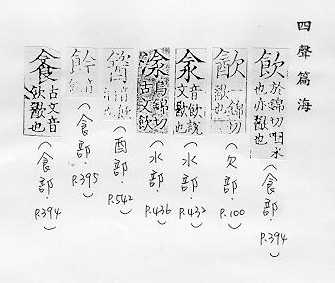 四聲篇海
飲 於錦切咽水也亦歠也 (食部. P.394)
一錦切歠也 (欠部. P.100)
音飲說文歠也 (水部. P.432)
烏錦切古文飲 (水部. P.436)
(酉部. P.542)
(食部. P.395)
古文音飲歠也 (食部. P.394)